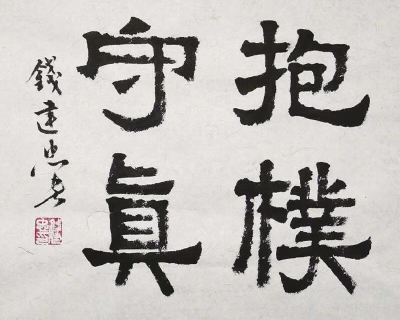 抱樸
守真
錢達忠書